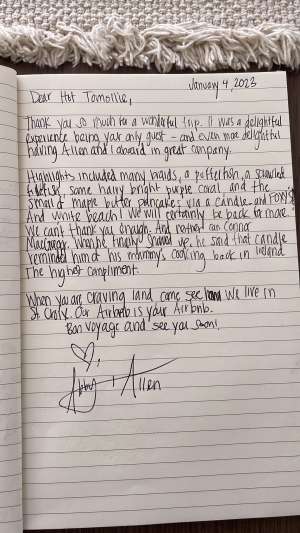 January 4, 2023
Dear Hot Tamollie,
Thank you so much for a wonderful trip. It was a delightful
experience being your only guest - and even more delightful
having Allen and I aboard in great company.
Highlights included many braids, a pufferfish, a
filefish, some hairy bright purple coral and the
smell of maple butter pancakes via a candle and FOXY'S
And White beach! We will certainly be back for more
We can't thank you enough. And neither can Conor
MacGregor. When he finally showed up, he said that candle
reminded him of his mommy's cooking back in Ireland
The highest compliment.
When you are craving land, come see We live in
St Croix. Our Airbnb is your Airbnb.
Bon voyage and see you soon!
Abby + Allen